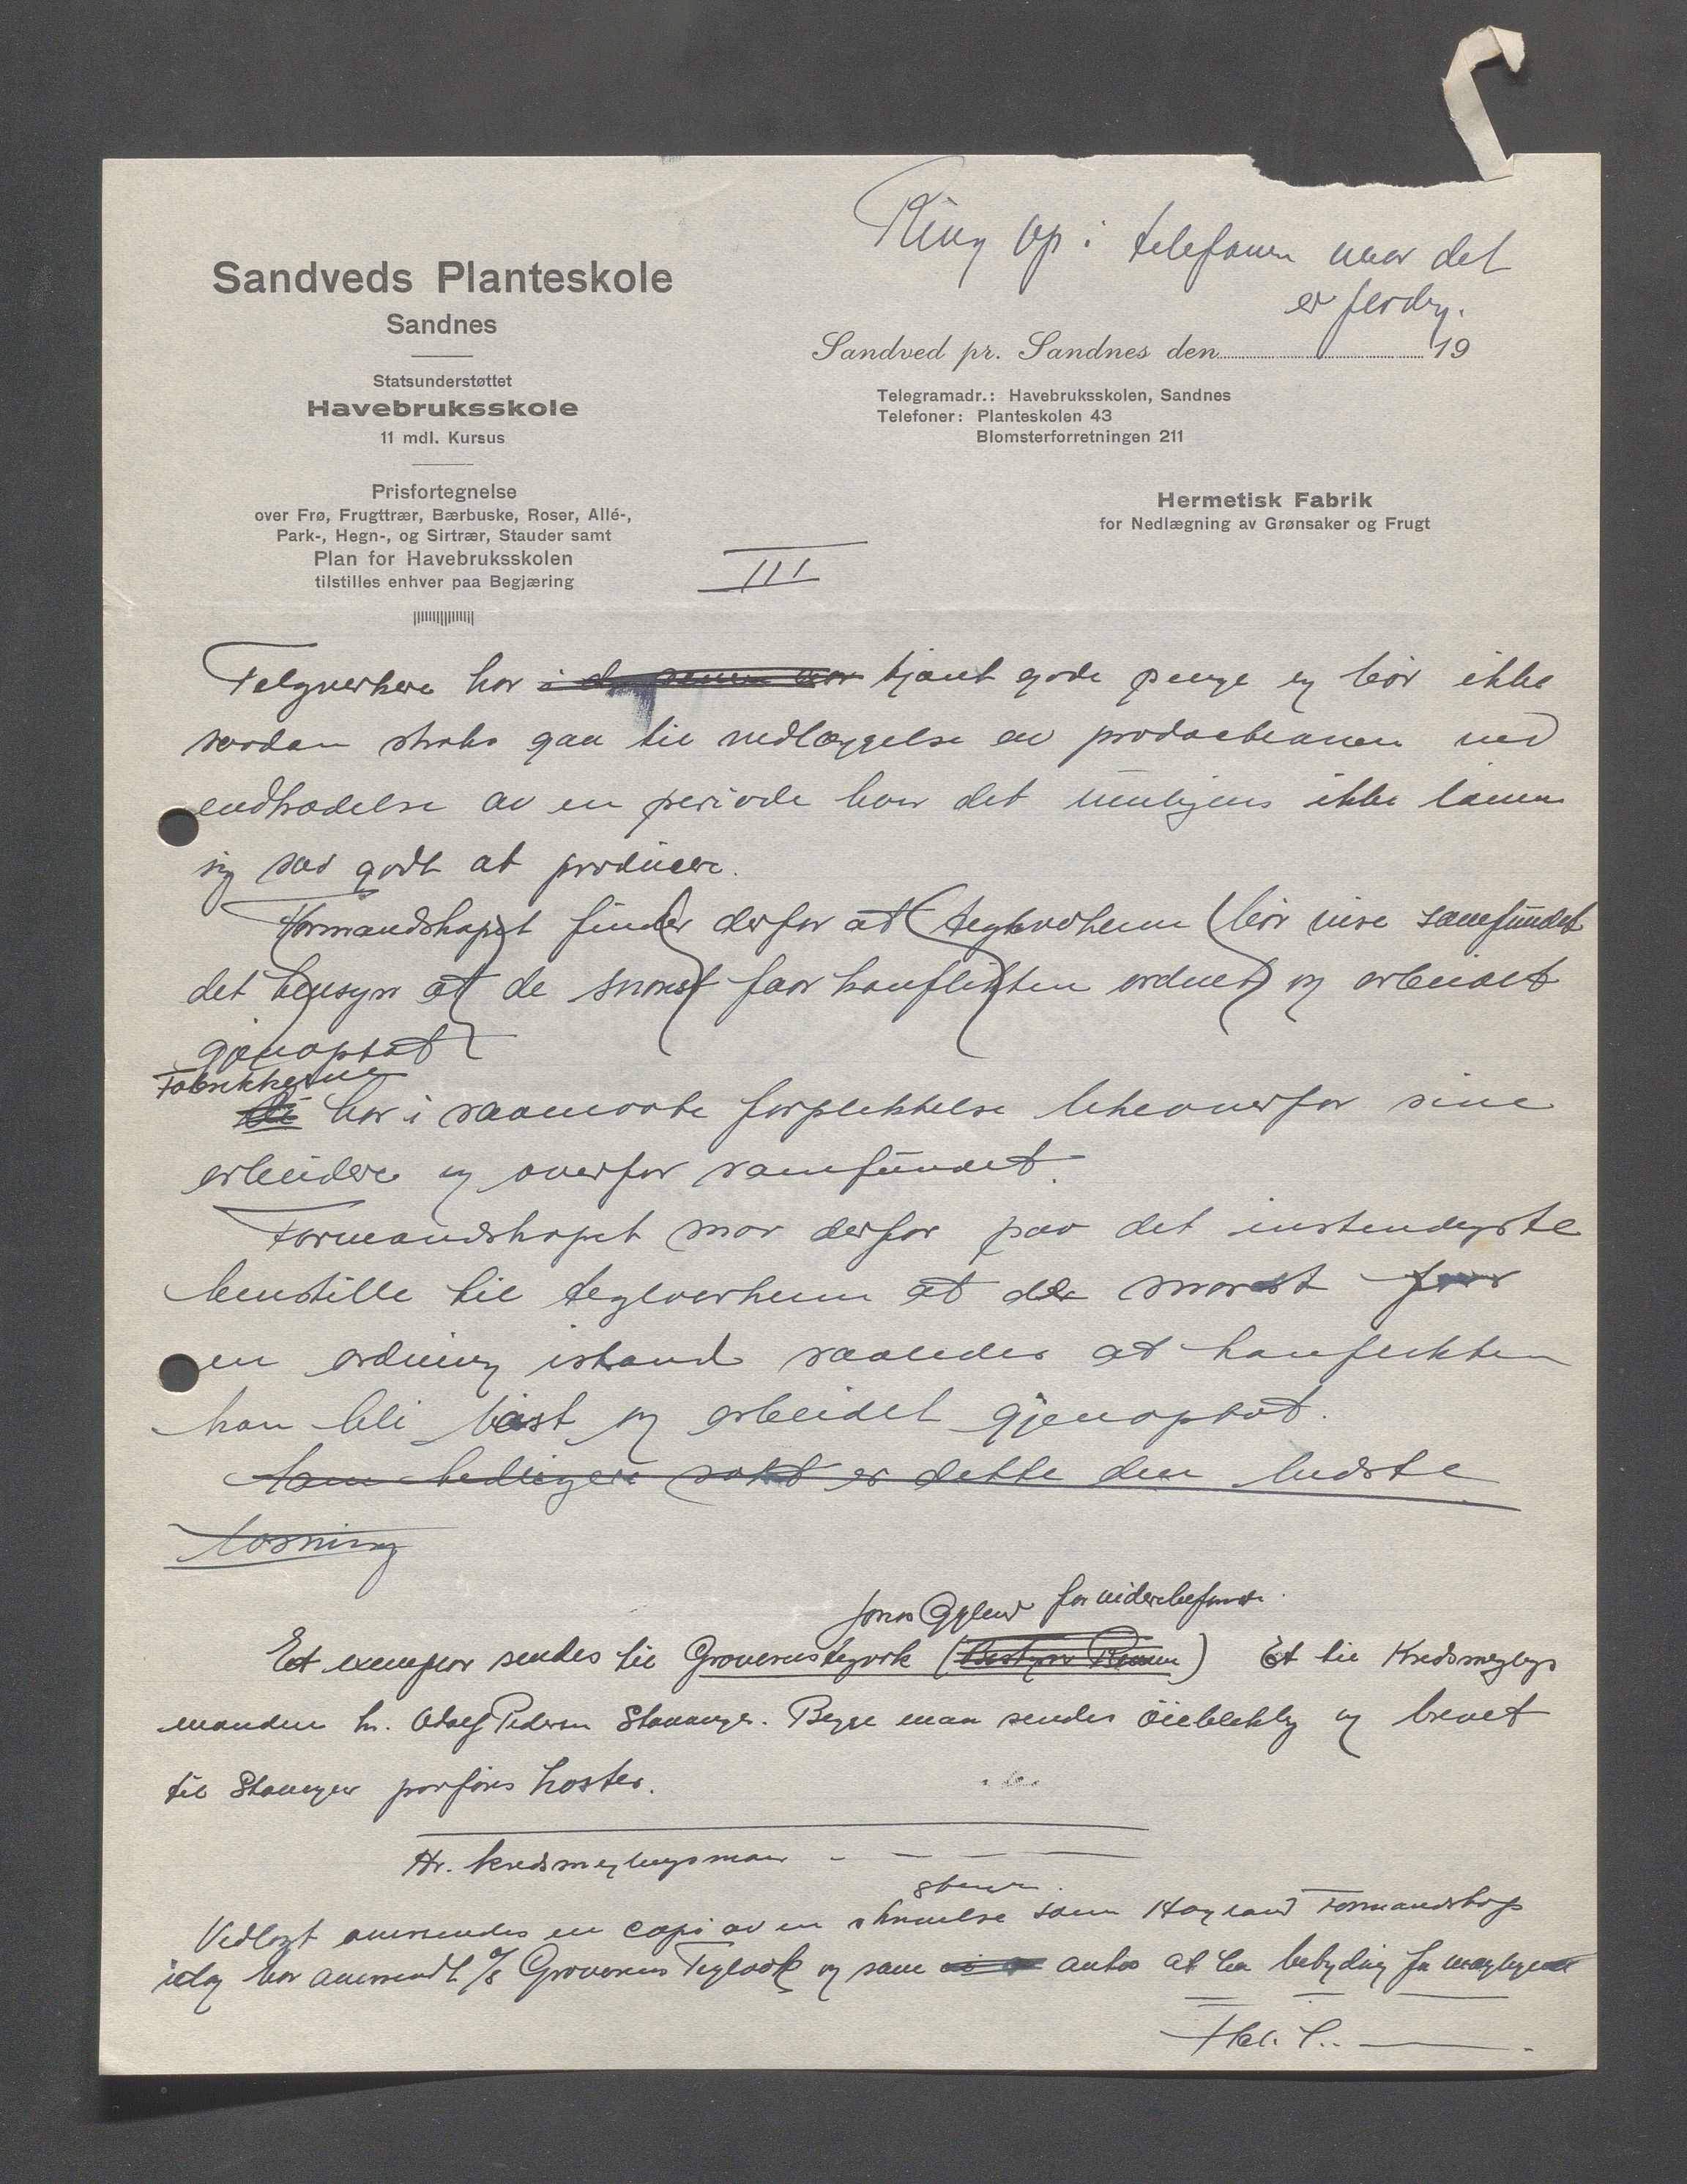 Ring op i telefonen naar det
er ferdig.
Sandveds Planteskole
Sandnes
Statsunderstøttet
Havebruksskole
11 mdl. Kursus
Prisfortegnelse
over Frø, Frugttrær, Bærbuske, Roser, Allé-,
Park-, Hegn-, og Sirtrær, Stauder samt
Plan for Havebruksskolen
tilstilles enhver paa Begjæring
Sandved pr. Sandnes den 19
Telegramadr.: Havebruksskolen, Sandnes
Telefoner: Planteskolen 43
Blomsterforretningen 211
Hermetisk Fabrik
for Nedlægning av Grønsaker og Frugt
III
Telgverkene har i de senere aar tjent gode penge og bør ikke
saadan straks gaa til nedlæggelse av productionen ved
indtrædelse av en periode hvor det muligens ikke lønner
sig saa godt at producere.
Formandskapet finder derfor at teglverkene bør vise samfundet
det hensyn at de snarest faar konflikten ordnet og arbeidet
gjenoptat
Fabrikkerne
har i saamaate forpliktelse likeoverfor sine
arbeidere og overfor samfundet.
Formandskapet maa derfor paa det instendigste
henstille til teglverkene at de snarest faar
en ordning istand saaledes at konflikten
kan bli løst og arbeidet gjenoptat.
sakt er dette den bedste
løsning
Jonas Øglend for viderebefordr.
Et exemplar sendes til Graverens teglverk ( ) Et til Kredsmeglings
manden hr. Adolf Pedersen Stavanger. Begge maa sendes øieblikkelig og brevet
til Stavanger paaføres haster.
Hr. Kredsmeglingsmann - - - -
Vedlagt oversendes en copi av en skrivelse som Høyland Formandskap
idag har oversendt A/S Graverens Teglverk og som antas at ha betydning for meglingen